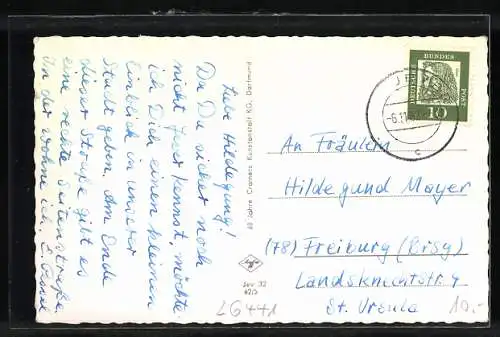 Liebe Hildegung!
Da Du sicher noch
nicht Jever kennst, möchte
ich Dich einen kleinen
Einblick in unsere
Stadt geben. Am Ende
dieser Straße gibt es
eine rechte Seitenstraße
in der wohne ich.
60 Jahre Cramers Kunstanstalt KG, Dortmund
Agfa
Jev 32
62/5
LG441
-6.11
c
DEUTSCHE
BUNDES
POST
10
An Fräulein
Hildegund Mayer
(78) Freiburg (Brsg)
Landsknechtstr. 4
St. Ursula
10,-